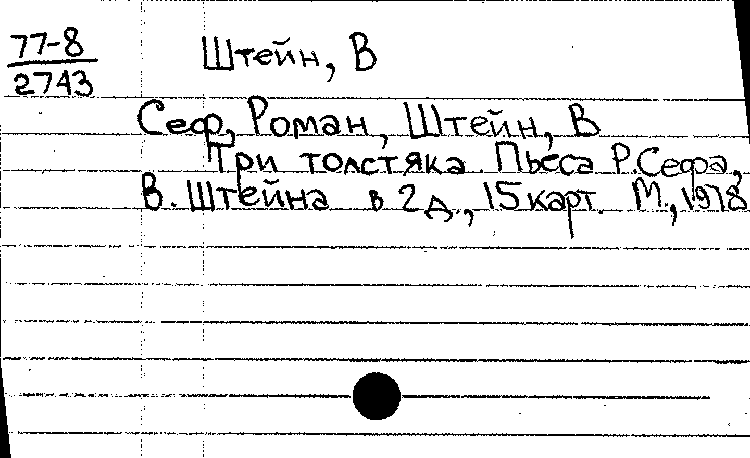 77-8
2743
Штейн, В
Сеф, Роман, Штейн, В
Три толстяка. Пьеса Р.Сефа,
В. Штейна в 2 д., 15 карт. М., 1978